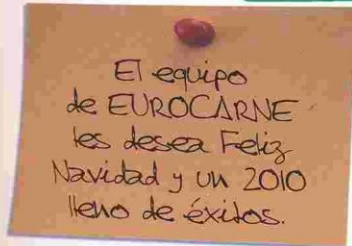 El equipo
de EUROCARNE
les desea Feliz
Navidad y un 2010
lleno de éxitos.